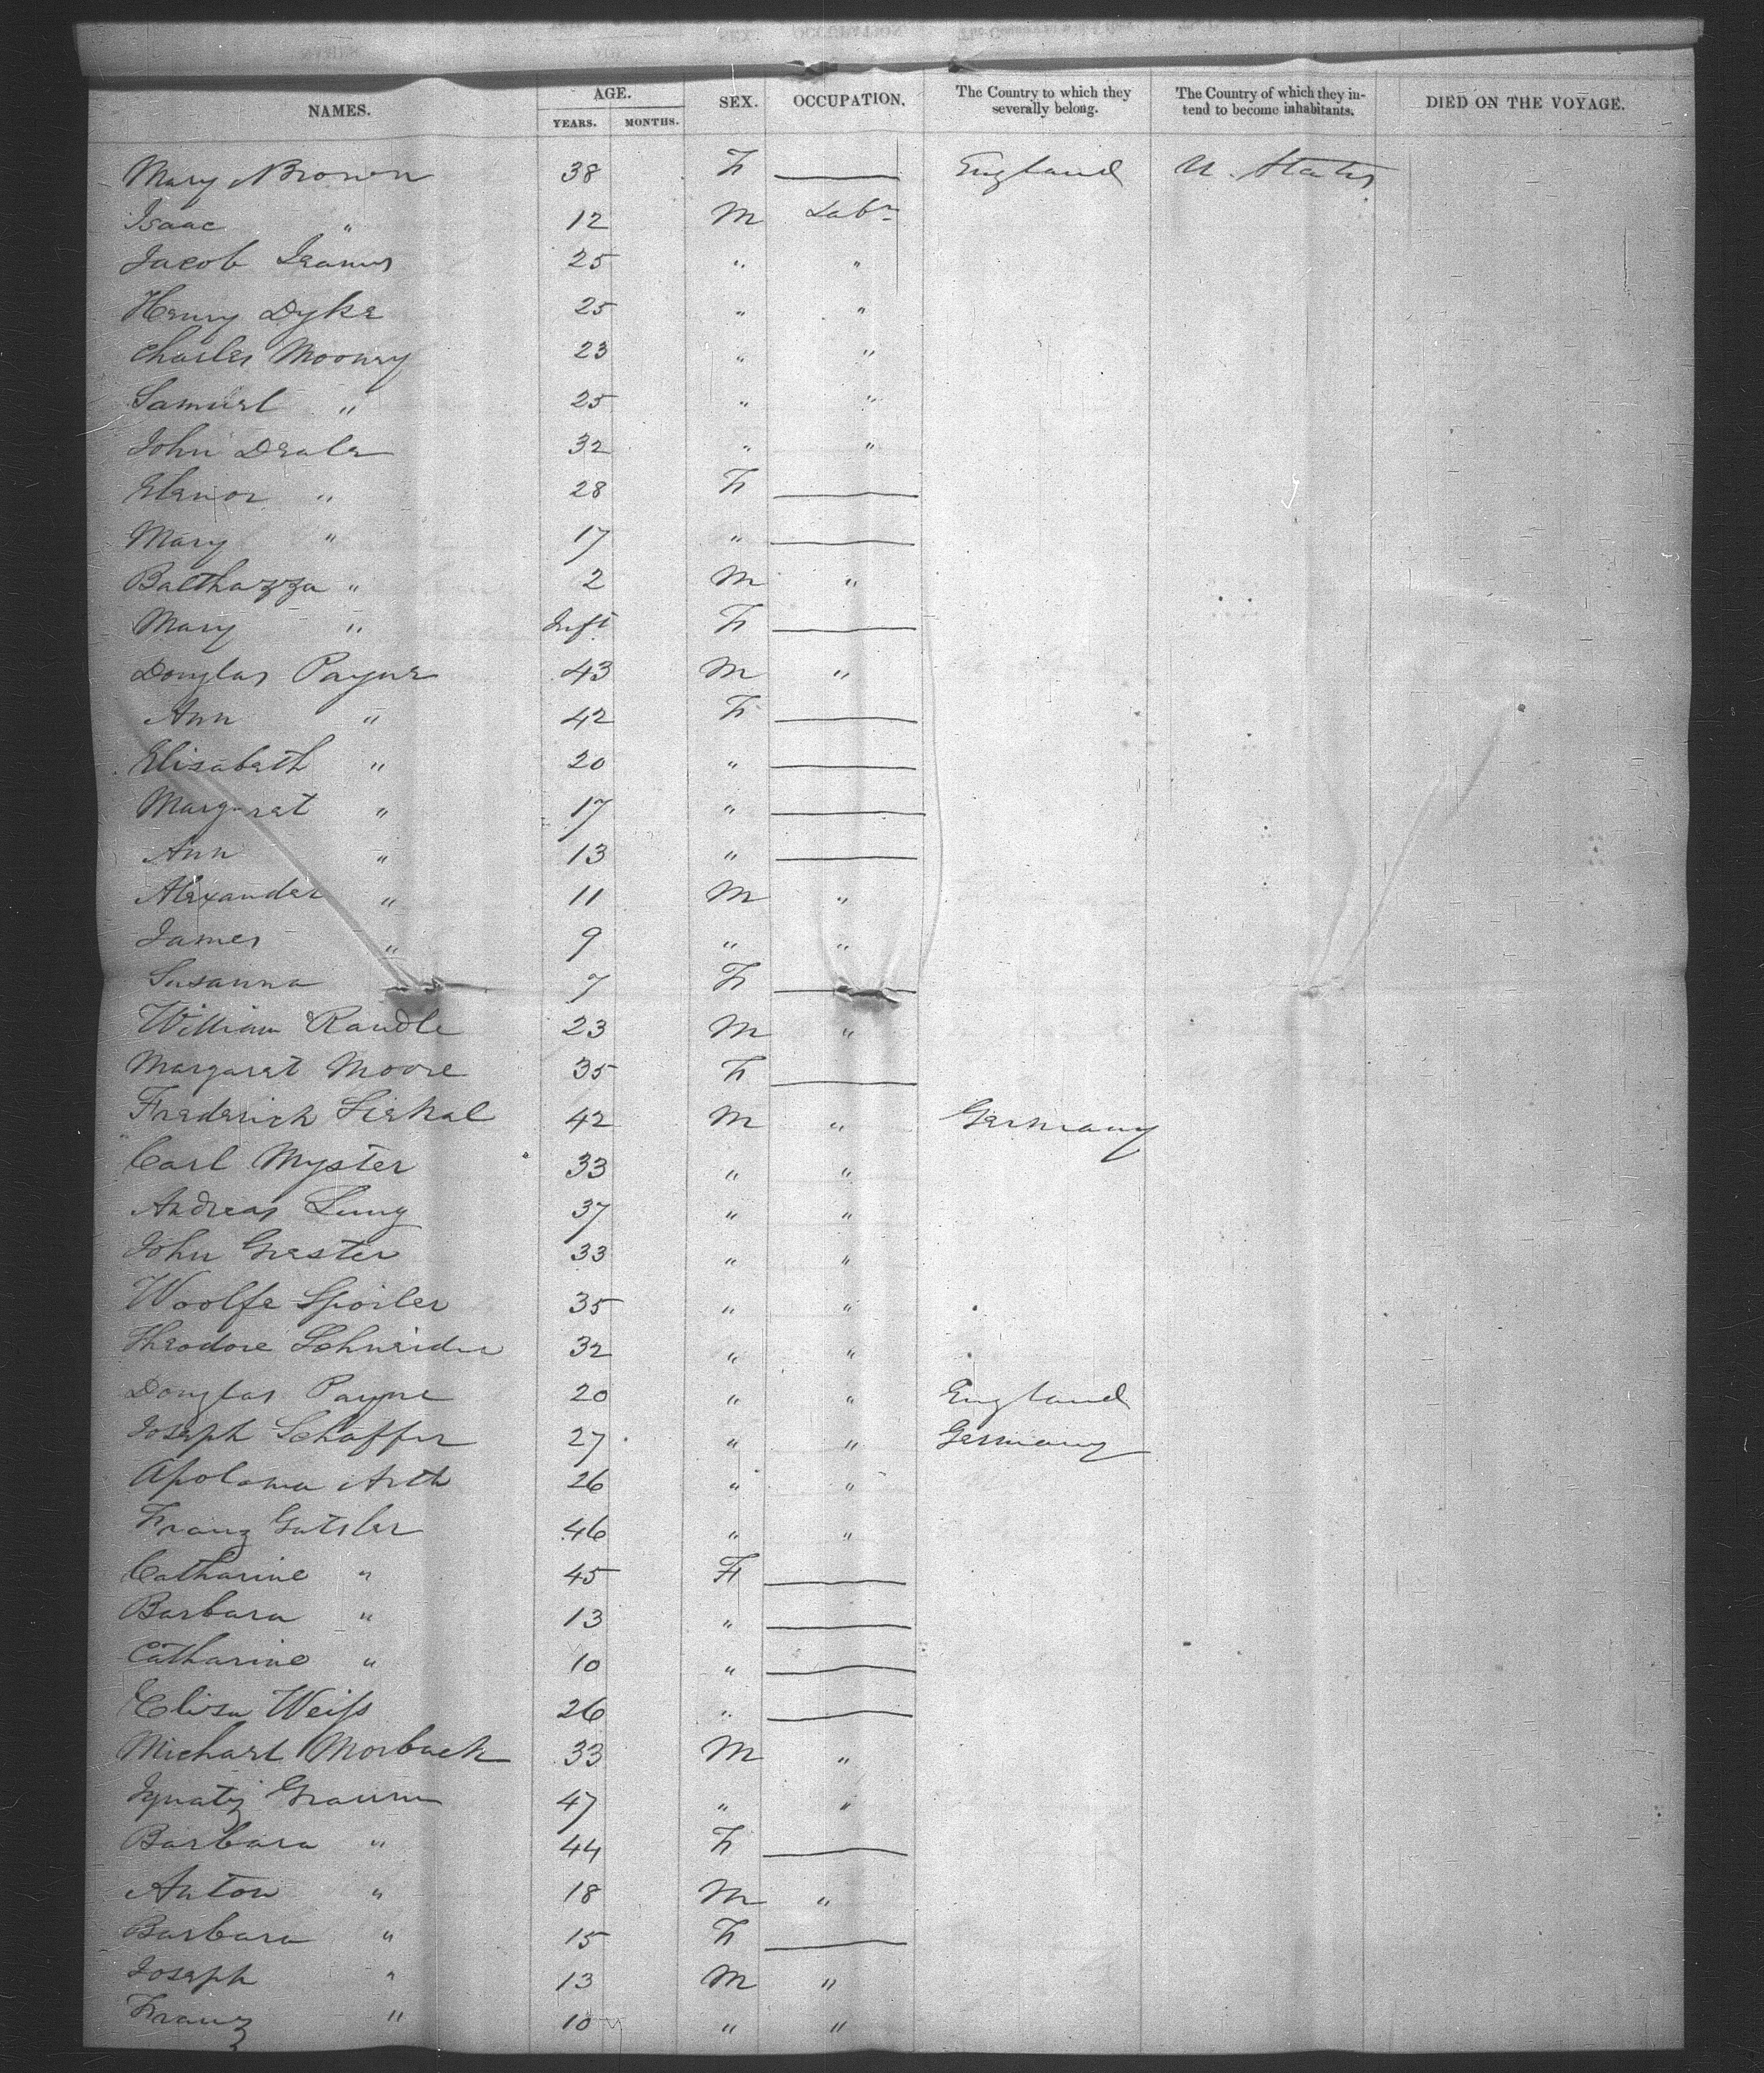 NAMES. AGE. SEX. OCCUPATION. The Country to which they severally belong. The Country of which they intend to become inhabitants. DIED ON THE VOYAGE.
YEARS. MONTHS.
Mary Brown 38 F — England U. States
Isaac " 12 M Labr
Jacob 25 " "
Henry Dyke 25 " "
Charles Mooney 23 " "
Samuel " 25 " "
John Deale 32 " "
Elenor " 28 F —
Mary " 17 " —
Balthazza " 2 M "
Mary " Inft F —
Douglas Payne 43 M "
Ann " 42 F —
Elisabeth " 20 " —
Margaret " 17 " —
Ann " 13 " —
Alexander " 11 M "
James " 9 " "
Susanna 7 F —
William Randle 23 M "
Margaret Moore 35 F —
Frederick 42 M " Germany
Carl Myster 33 " "
Andreas 37 " "
John Grester 33 " "
Woolfe Spoiler 35 " "
Theodore Schneider 32 " "
Douglas Payne 20 " " England
Joseph Schaffer 27 " " Germany
Apolona Arth 26 " "
Franz Gatsler 46 " "
Catharine " 45 F —
Barbara " 13 " —
Catharine " 10 " —
Elisa Weiss 26 " —
Michael Morbach 33 M "
Ignatz 47 " "
Barbara " 44 F —
Anton " 18 M "
Barbara " 15 F —
Joseph " 13 M "
Franz " 10 " "